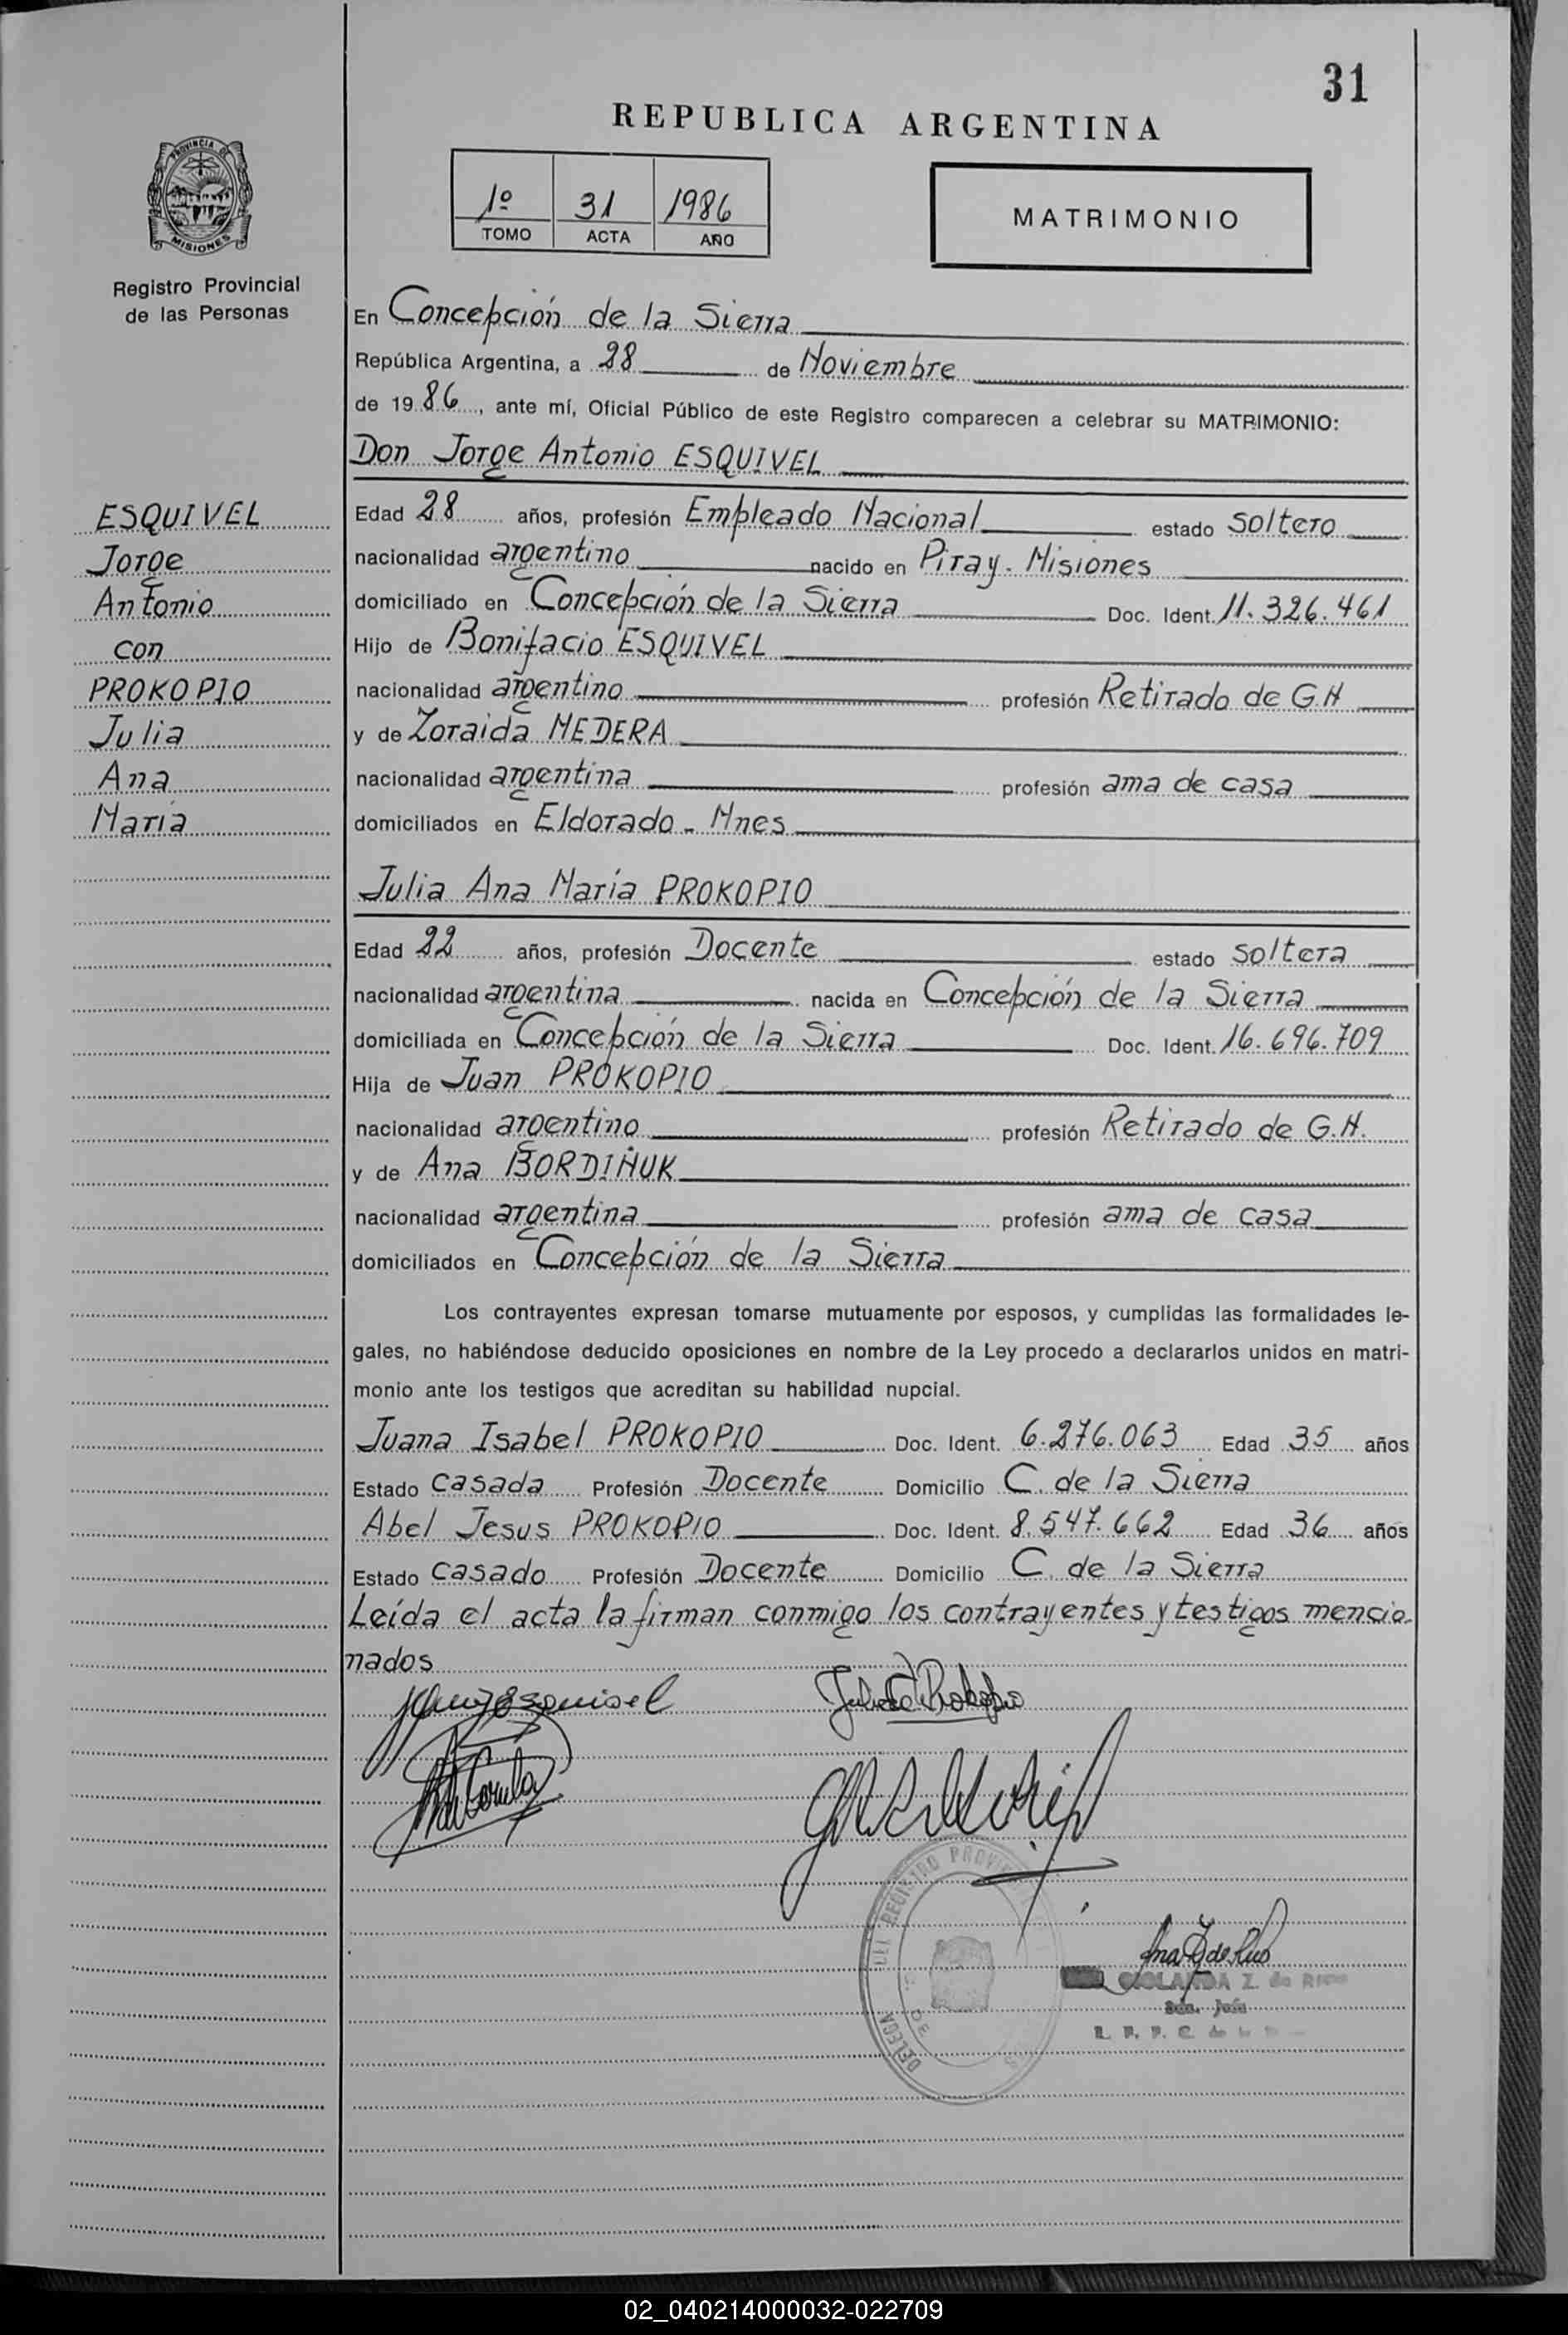 31
REPUBLICA ARGENTINA
PROVINCIA DE
MISIONES
1º 31 1986
TOMO ACTA AÑO
MATRIMONIO
Registro Provincial
de las Personas
En Concepción de la Sierra
República Argentina, a 28 de Noviembre
de 1986, ante mí, Oficial Público de este Registro comparecen a celebrar su MATRIMONIO:
Don Jorge Antonio ESQUIVEL
ESQUIVEL
Jorge
Antonio
con
PROKOPIO
Julia
Ana
María
Edad 28 años, profesión Empleado Nacional estado soltero
nacionalidad argentino nacido en Piray - Misiones
domiciliado en Concepción de la Sierra Doc. Ident. 11.326.461
Hijo de Bonifacio ESQUIVEL
nacionalidad argentino profesión Retirado de G.N
y de Zoraida MEDERA
nacionalidad argentina profesión ama de casa
domiciliados en Eldorado - Mnes
Julia Ana María PROKOPIO
Edad 22 años, profesión Docente estado soltera
nacionalidad argentina nacida en Concepción de la Sierra
domiciliada en Concepción de la Sierra Doc. Ident. 16.696.709
Hija de Juan PROKOPIO
nacionalidad argentino profesión Retirado de G.N.
y de Ana BORDIÑUK
nacionalidad argentina profesión ama de casa
domiciliados en Concepción de la Sierra
Los contrayentes expresan tomarse mutuamente por esposos, y cumplidas las formalidades le-
gales, no habiéndose deducido oposiciones en nombre de la Ley procedo a declararlos unidos en matri-
monio ante los testigos que acreditan su habilidad nupcial.
Juana Isabel PROKOPIO Doc. Ident. 6.276.063 Edad 35 años
Estado casada Profesión Docente Domicilio C. de la Sierra
Abel Jesus PROKOPIO Doc. Ident. 8.547.662 Edad 36 años
Estado casado Profesión Docente Domicilio C. de la Sierra
Leída el acta la firman conmigo los contrayentes y testigos mencio-
nados
DEL REGISTRO
DELEGA
02_040214000032-022709